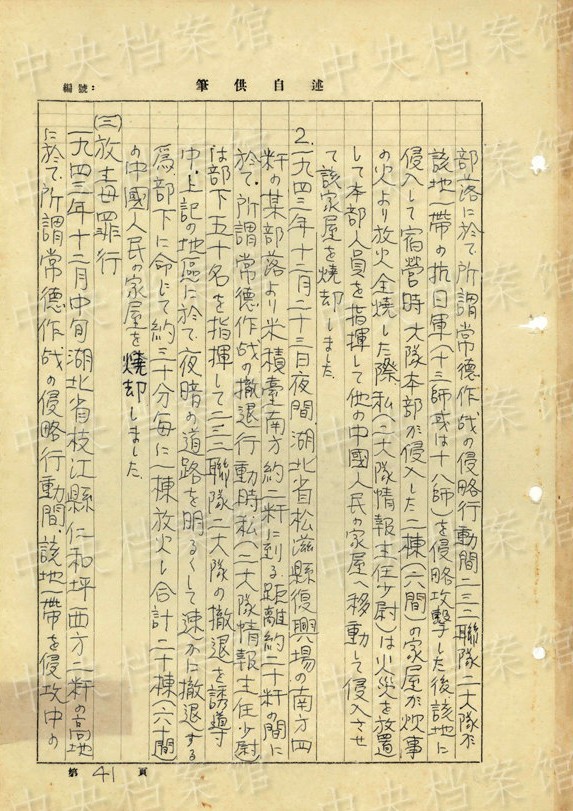 編號：
筆供自述
部落に於て所謂常德作战の侵略行動間二三二聯隊二大隊が
該地一帶の抗日軍(十三師或は十八師)を侵略攻擊した後該地に
侵入して宿營時大隊本部が侵入した二棟(六間)の家屋が炊事
の火より放火全燒した際私(二大隊情報主任少尉)は火災を放置
して本部人員を指揮して他の中國人民の家屋へ移動して侵入させ
て該家屋を燒却しました
2.一九四三年十二月二十三日夜間湖北省松滋縣復興場の南方四
粁の某部落より米積臺南方約二粁に到る距離約二十粁の間に
於て所謂常德作战の撤退行動時私(二大隊情報主任少尉)
は部下五十名を指揮して二三二聯隊二大隊の撤退を誘導
中、上記の地區に於て夜暗の道路を明るくして速かに撤退する
爲部下に命じて約三十分每に一棟放火し合計二十棟(六十間)
の中國人民の家屋を燒却しました
(三)放毒罪行
一九四三年十二月中旬湖北省枝江縣仁和坪西方二粁の高地
に於て所謂常德作战の侵略行動間、該地一帶を侵攻中の
第41頁
中央档案馆